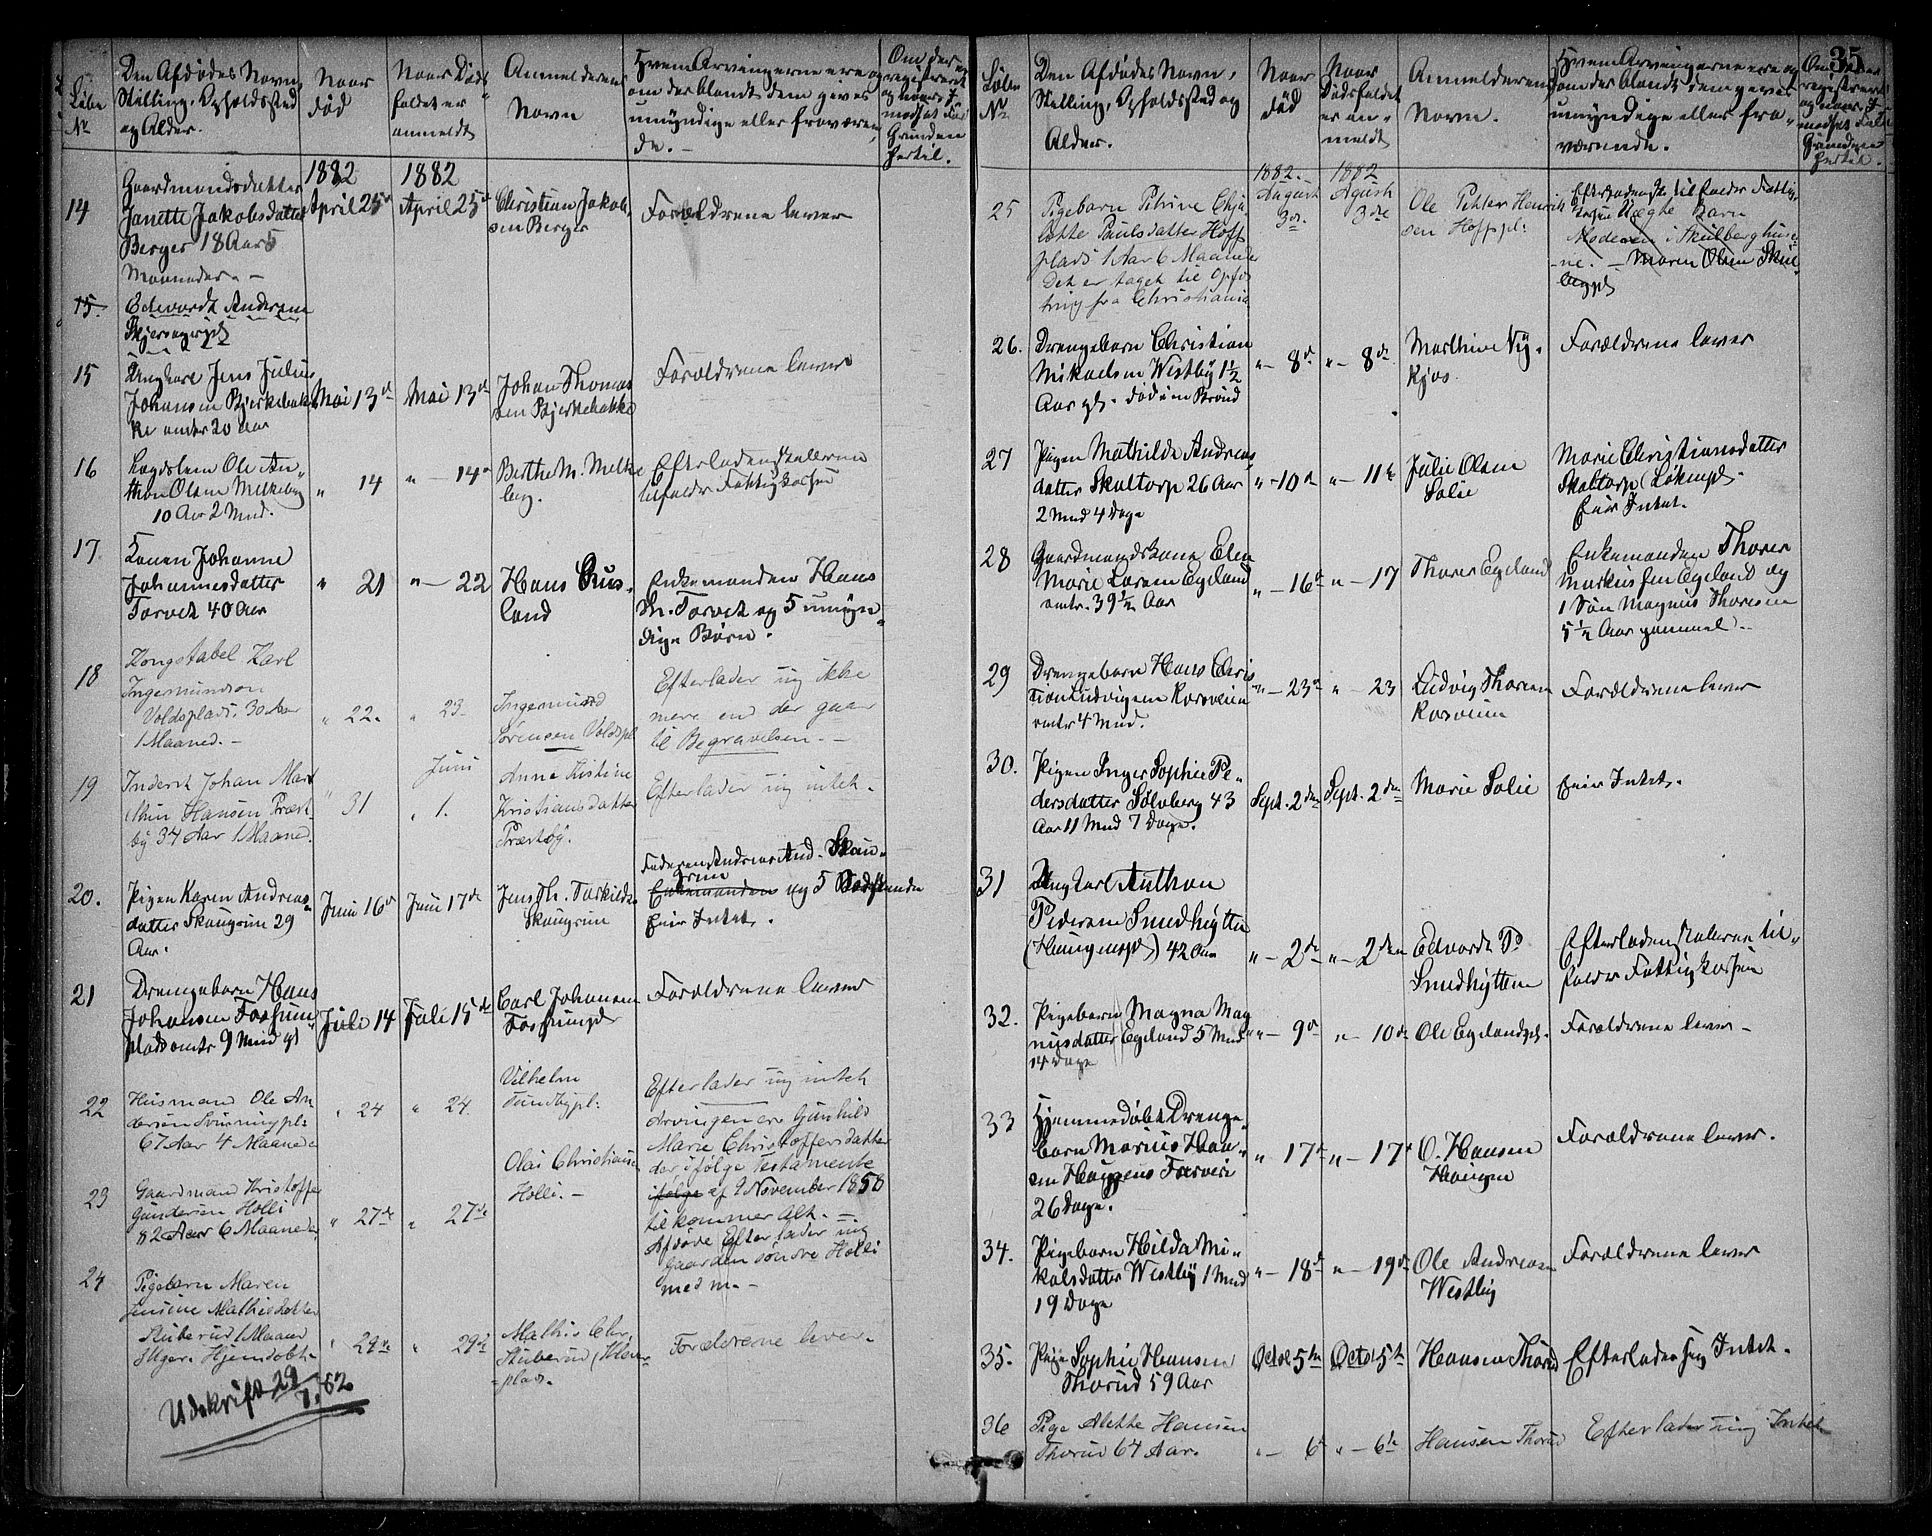 35
Løbe
No
Den Afdødes Navn,
Stilling, Opholdssted
og Alder.
Naar
død
Naar Døds
faldet er
anmeldt
Anmelderens
Navn
Hvem Arvingerne ere og
om der blandt dem gives
umyndige eller fraværen
de. -
Om der er
registreret
og naar, I
modsat Fald
Grunden
hertil.
1882 1882
14
Gaardmandsdatter
Janette Jakobsdatter
Berger 18 Aar 5
Maaneder. -
April 25de
April 25de
Christian Jakob
sen Berger
Forældrene lever
15
Edvardt Andersen
15
Ungkarl Jens Julius
Johansen Bjerkebak
ke omtr 20 Aar
Mai 13de
Mai 13de
Johan Thomas
sen Bjerkebakke
Forældrene lever
16
Lægdslem Ole An
thon Olsen Melkeby
10 Aar 2 Mnd.
" 14
" - 14de
Berthe M. Melke
berg.
Efterladenskaberne
tilfalder Fattigkassen
17
Konen Johanne
Johannesdatter
Torvet 40 Aar
" 21
" - 22
Hans Hus
land
Enkemanden Hans
M. Torvet og 5 umyn
dige Børn.
18
Kongstabel Karl
Ingemundson
Voldsplads. 30 Aar
1 Maaned. -
" 22.
" 23.
Ingemund
Sørensen Voldspl
Efterlader sig ikke
mere end der gaar
til Begravelsen. -
19
Inderst Johan Mar
thin Hansen Præst
by 34 Aar 1 Maaned.
" 31
Juni
" 1.
Anna Kistine
Kristiansdatter
Præstby.
Efterlader sig intet.
20.
Pigen Karen Andreas
datter Skaugrim 29
Aar.
Juni 16de
Juni 17de
Jens Th. Torkilds
Skaugrim
Faderen Andreas And. Skau
grim
Enkemanden og 5 Sødskende
Eier Intet.
21
Drengebarn Hans
Johansen Fossum
plads omtr 9 Mnd gl
Juli 14
Juli 15de
Carl Johansen
Fossumpl
Forældrene lever
22
Husmand Ole An
dersen Svinningpl:
67 Aar 4 Maaneder
" 24
" 24.
Vilhelm
Tundbypl:
Efterlader sig intet
23
Gaardmand Kristoffer
Gundersen Holli
82 Aar 6 Maaneder
" 27de
" 27de
Olai Christiansen
Holli. -
Arvingen er Gunhild
Marie Christoffersdatter
der ifølge Testamente
ifølge af 9 November 1858
tilkommer alt. -
Afdøde Efterlader sig
gaarden søndre Holli
med m. -
24
Pigebarn Maren
Jensine Mathisdatter
Stuberud 1 Maaned
Uger. Hjemdøbt
" 29de
" 29de
Mathis Chr.
Stuberud (Kleve
-plads.
Forældrene lever.
Udskrift 29/7.82
Løbe
No
Den Afdødes Navn,
Stilling, Opholdssted og
Alder.
Naar
Død
Naar
Dødsfaldet
er an-
meldt
Anmelderens
Navn.
Hvem Arvingerne ere og
om der blandt dem gives
umyndige eller fra-
værende.
Om der er
registreret
og naar, I
modsat Fald
Grunden
hertil.
1882. 1882
25
Pigebarn Petrine Cha
lotte Paulsdatter Hoff
plads 1 Aar 6 Maaneder
Det er taget til Opfo
string fra Christiania
August
3de
Agust
3de
Ole Petter Henrik
sen Hoffpl:
Efterladenskab tilfalder Fattig
kassen Uægte Barn
Moderen i Skulberghuse
ne. - Maren Olsen Skul
bergpl
26.
Drengebarn Christian
Mikaelsen Westby 1½
Aar gl. død i en Brønd
" - 8de
" - 8de
Marthin Ny-
kjøs
Forældrene lever
27
Pigen Mathilde Andreas
datter Skaltorp 26 Aar
2 Mnd 4 Dage
" - 10de
" - 11te
Julie Olsen
Solie
Marie Christiansdatter
Skaltorp (Løkenpl.
Eier Intet.
28
Gaardmandskone Elen
Marie Larsen Egeland
omtr. 39½ Aar
" - 16de
" - 17
Thorer Egeland
Enkemanden Thorer
Markussen Egeland og
1 Søn Magnus Thoresen
5½ Aar gammel. -
29
Drengebarn Hans Chris
tian Ludvigsen Korsveien
omtr 4 Mnd.
" - 23de
" - 23
Ludvig Thoresen
Korsveien
Forældrene lever
30.
Pigen Inger Sophie Pe-
dersdatter Sølvberg 43
Aar 11 Mnd 7 Dage.
Sept. 2den
Sept. 2den
Marie Solie
Eier Intet.
31
Ungkarl Anthon
Pedersen Smedhytten
(Haugenspl) 42 Aar
" - 2de
" - 2den
Edvardt P.
Smedhytten
Efterladenskaberne til
falder Fattigkassen
32.
Pigebarn Magna Mag
nusdatter Egeland 5 Mnd
14 Dage
" - 9de
" - 10de
Ole Egelandspl.
Forældrene lever -
33
Hjemmedøbt Drenge
barn Marius Han
sen Haugens Farveri
26 Dage.
" 17de
" - 17de
O. Hansen
Haugen
Forældrene lever.
34.
Pigebarn Hilda Mi-
kalsdatter Westby 1 Mnd
19 Dage
" - 18de
" - 19de
Ole Andreasen
Westby
Forældrene lever
35.
Pige Sophie Hansen
Thorud 59 Aar
Octob 5te
Octob 5te
Hansen Thorud
Efterlader sig Intet.
36
Pige Alette Hansen
Thorud 64 Aar.
" - 6te
" - 6te
Hansen Thorud
Efterlader sig Intet